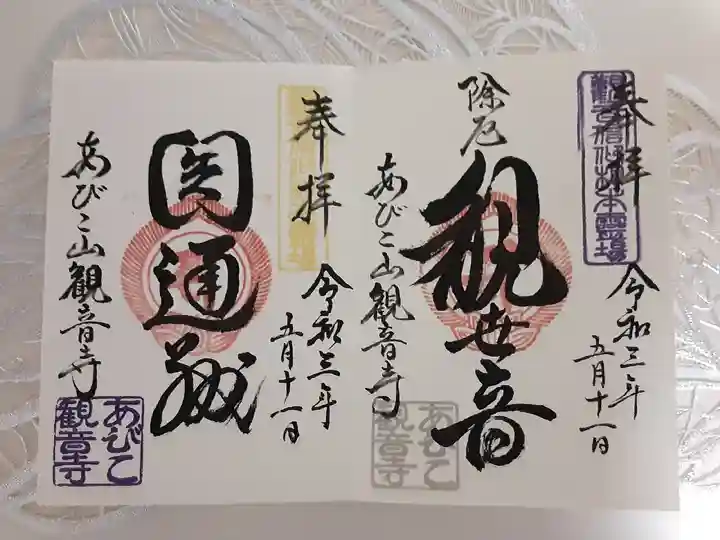 奉拝
令和三年
五月十一日
除厄
観世音
あびこ山観音寺
あびこ
観音寺
奉拝
令和三年
五月十一日
圓通殿
あびこ山観音寺
あびこ
観音寺